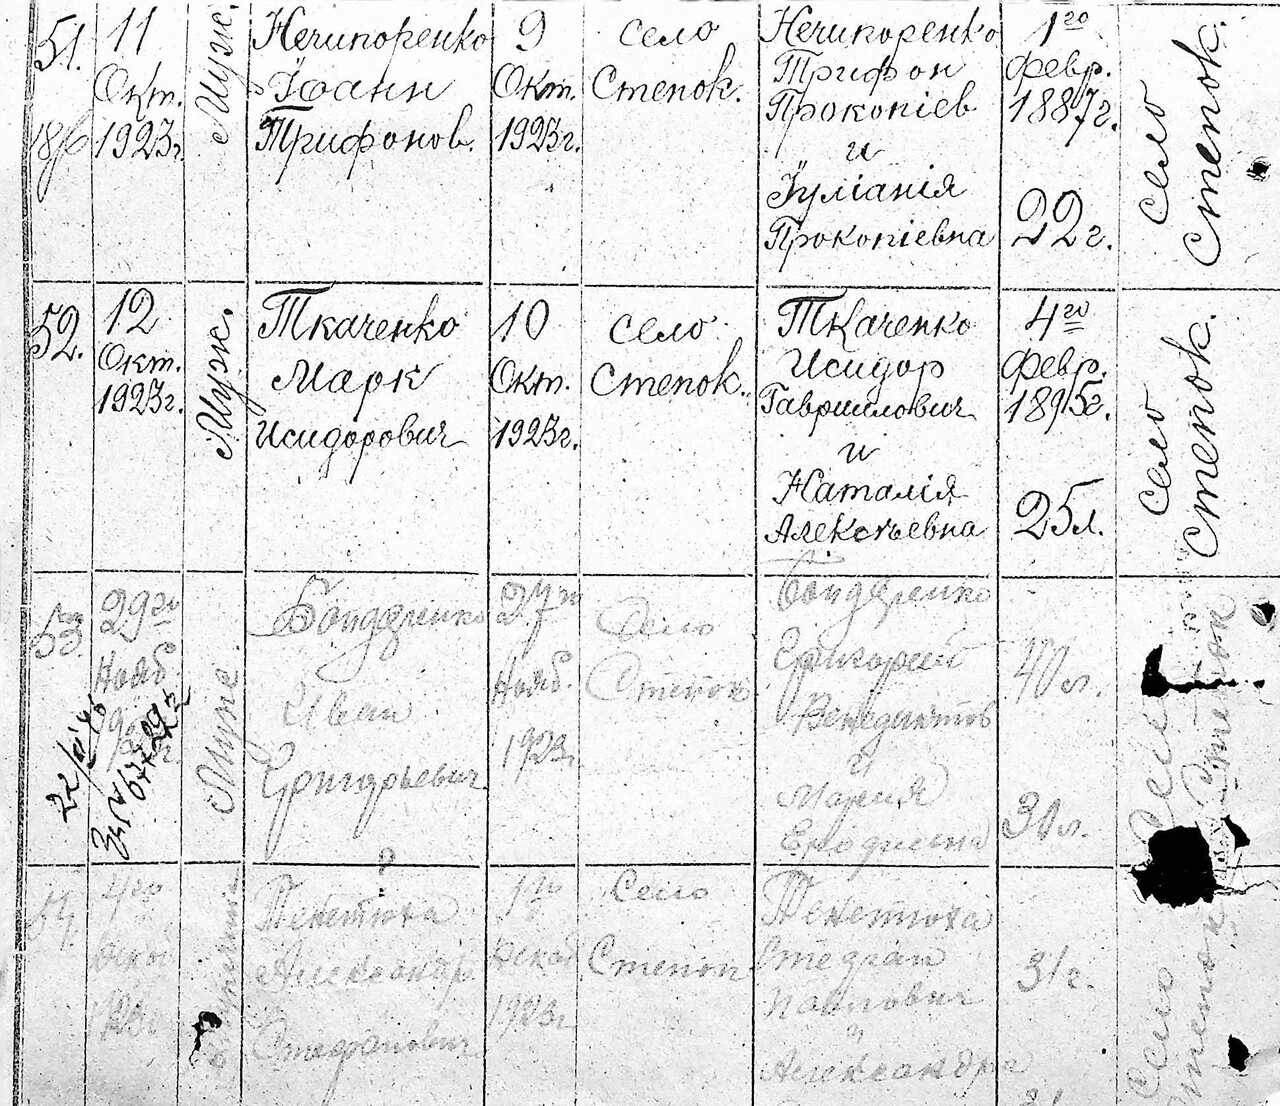 51.
186
11
Окт.
1923г.
Муж.
Нечипоренко
Іоанн
Трифонов.
9
Окт.
1923г.
село
Степок.
Нечипоренко
Трифон
Прокопіев
и
Іуліанія
Прокопіевна
1го
февр.
1887г.
22г.
село
Степок.
52.
12
Окт.
1923г.
Муж.
Ткаченко
Марк
Исидорович
10
Окт.
1923г.
село
Степок.
Ткаченко
Исидор
Гавриилович
и
Наталія
Алексѣевна
4го
февр.
1895г.
25л.
село
Степок.
53
29го
Нояб.
Муж.
Бондаренко
Иван
Григорьевич
27го
Нояб.
1923г.
Село
Степок
Бондаренко
Григорий
Венедиктов
и
Мария
40л.
30л.
Село
Степок
54.
4го
Декаб
1923г
?
Тенетиха
Александр
Стефанович
1го
Декаб
1923г
Село
Степок
Тенетиха
Стефан
Павлович
и
Александра
31г.
Село
Степок